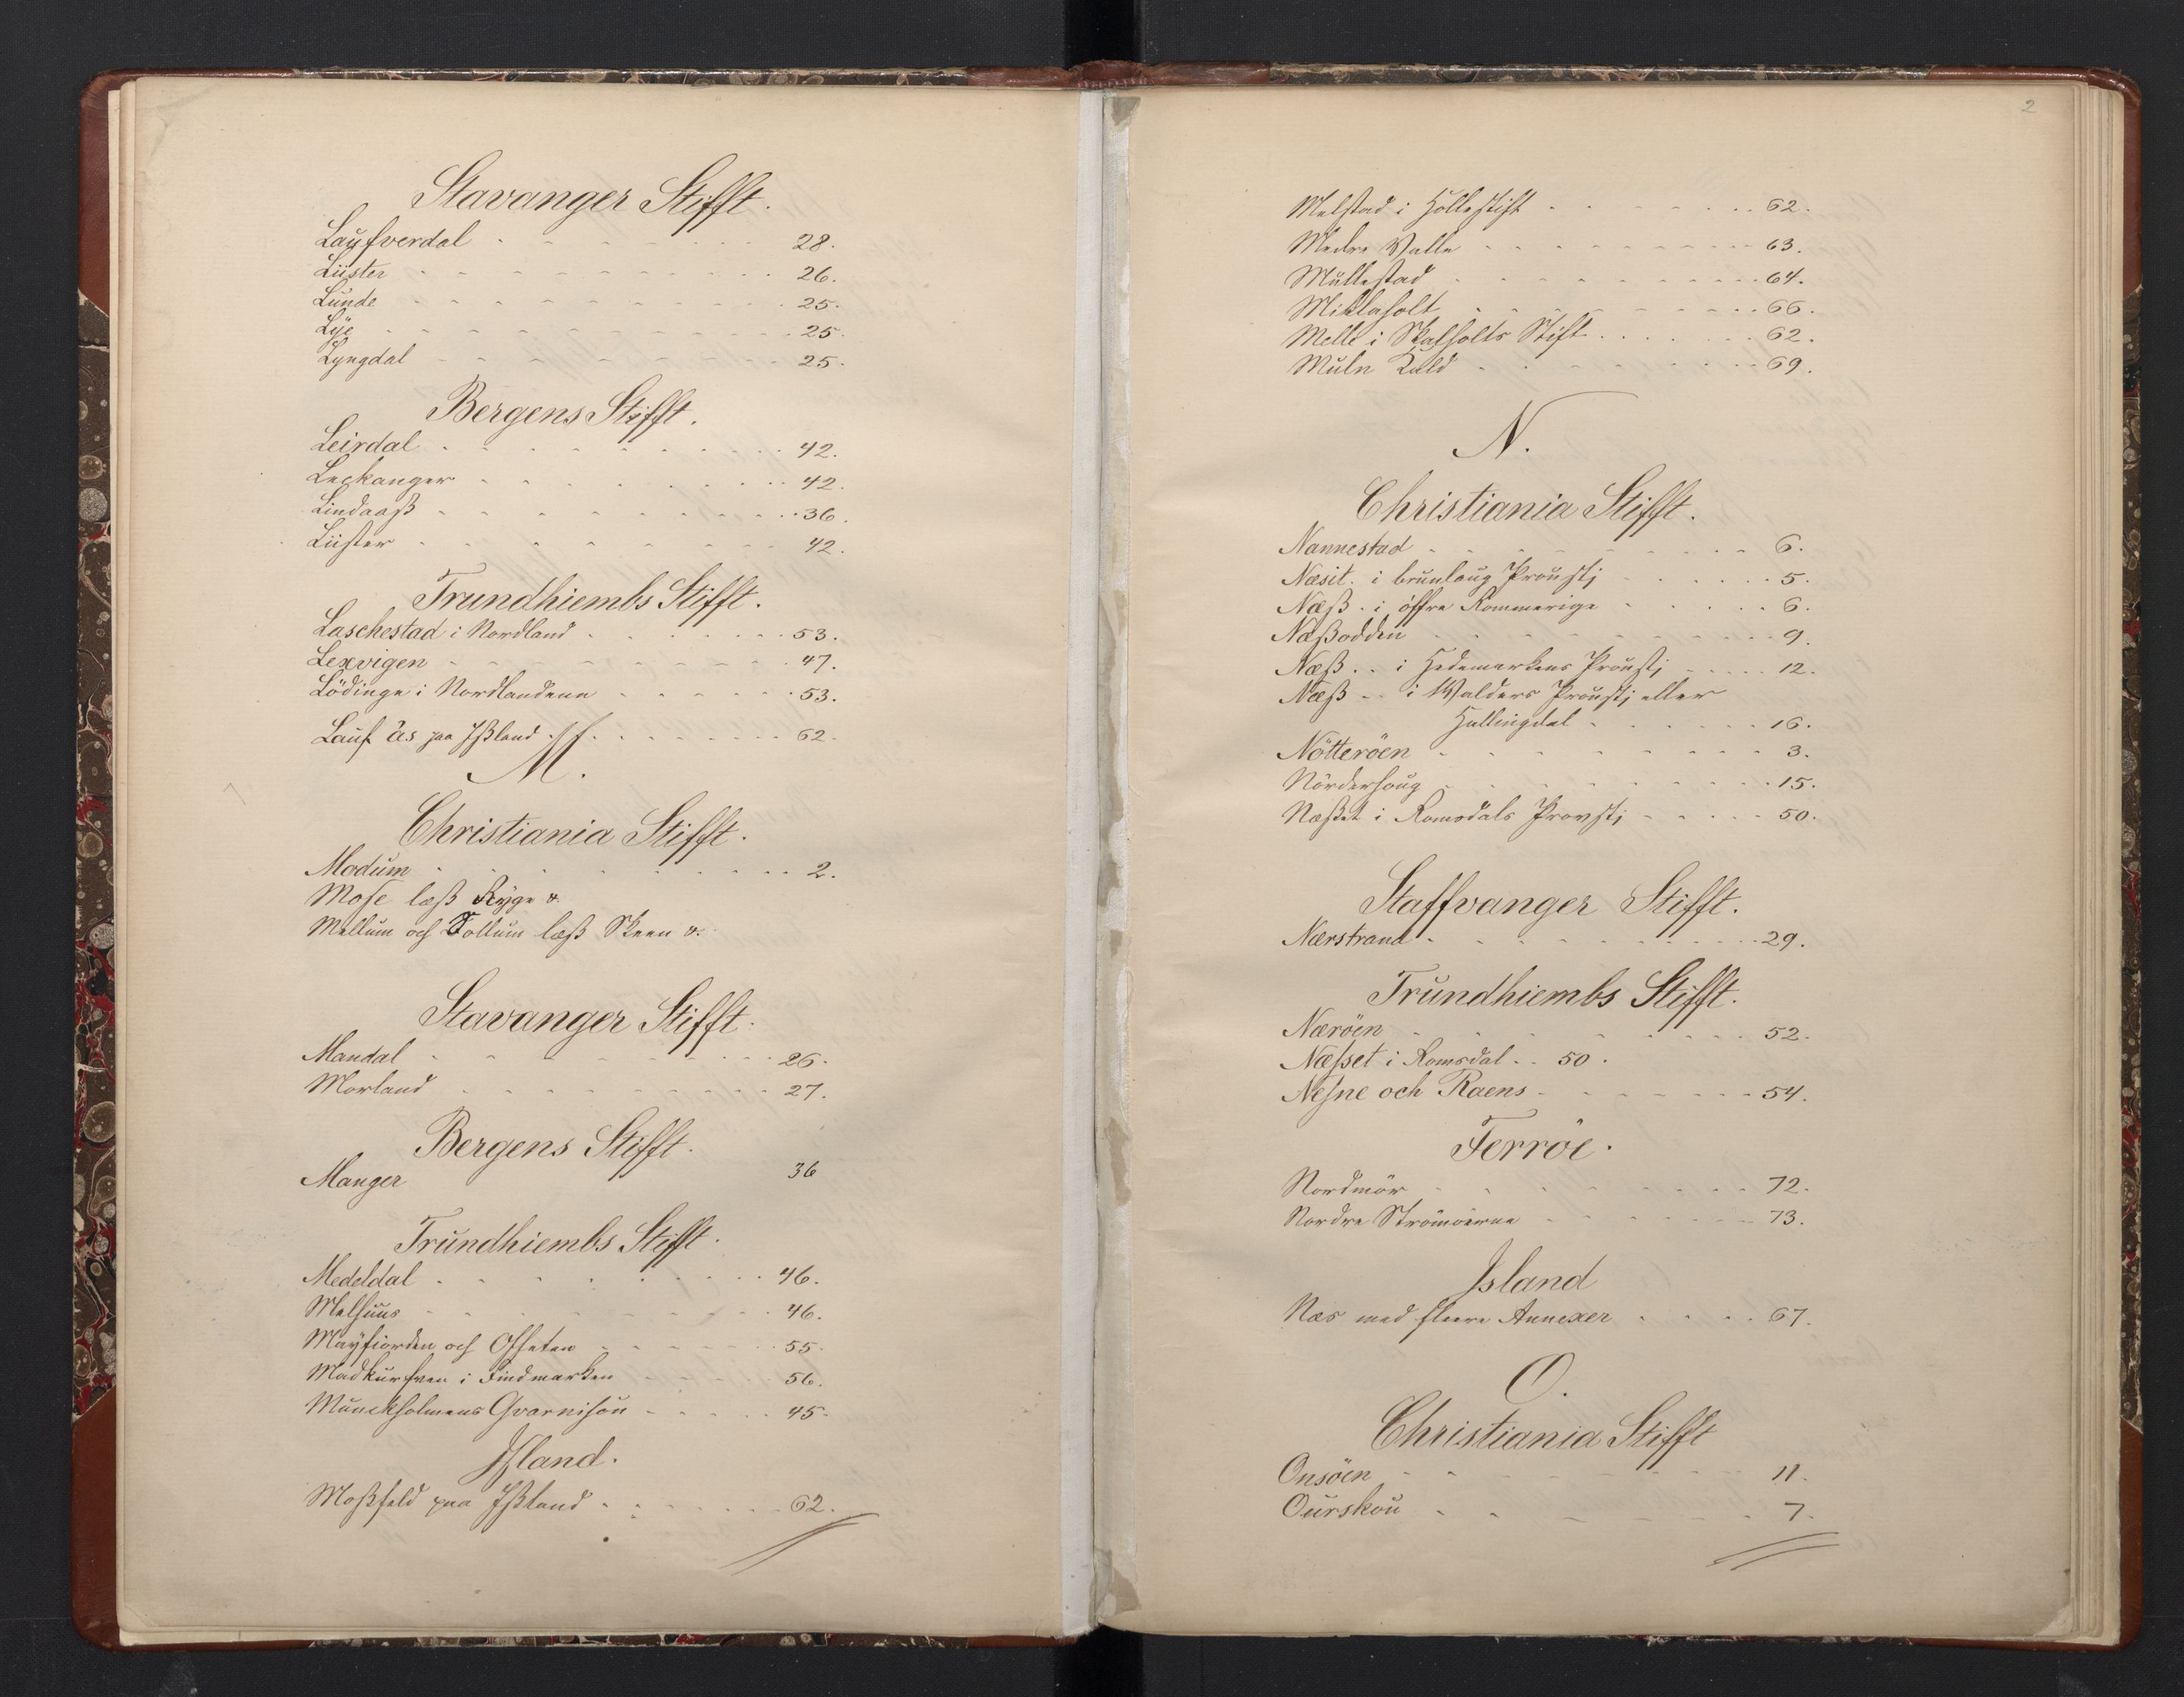 Stavanger Stifft.
Laufverdal 28.
Lüster 26.
Lunde 25.
Lÿe 25.
Lyngdal 25.
Bergens Stifft.
Leirdal 42.
Leckanger 42.
Lindaaß 36.
Lüster 42.
Trundhiembs Stifft.
Laschestad i Nordland 53.
Lexvigen 47.
Lödinge i Nordlandene 53.
Lauf ås paa Ißland 62.
M.
Christiania Stifft.
Modum 2.
Mose læß Ryge
Mellum och Sollum læß Skeen
Stavanger Stifft.
Mandal 26.
Morland 27.
Bergens Stifft.
Manger 36
Trundhiembs Stifft.
Medeldal 46.
Melhuus 46.
Mayfiorden och Offeten 55.
Madkurfven i Findmarken 56.
Munckholmens Gvarnison 45.
Island.
Moßfeld paa Ißland 62.
2
Melstad i Hollestift 62.
Medre Valle 63.
Mullestad 64.
Miklaholt 66.
Melle i Skalholts Stift 62.
Mule Kald 69.
N.
Christiania Stifft.
Nannestad 6.
Næsit. i brunlaug Proustj 5.
Næß. i öffre Rommerige 6.
Næßodden 9.
Næß. . i Hedemarkens Proustj 12.
Næß - - i Walders Proustj eller
Hallingdal 16.
Nötteröen 3.
Nörderhoug 15.
Næßet i Romsdals Provstj 50.
Staffvanger Stifft.
Nærstrand 29.
Trundhiembs Stifft.
Næröen 52.
Næsset i Romsdal . . 50.
Nesne och Raens 54.
Ferröe.
Nordmör 72.
Nordre Strömöerne 73.
Island
Næs med fleere Annexer 67.
O.
Christiania Stifft
Onsöen 11.
Ourskou 7.